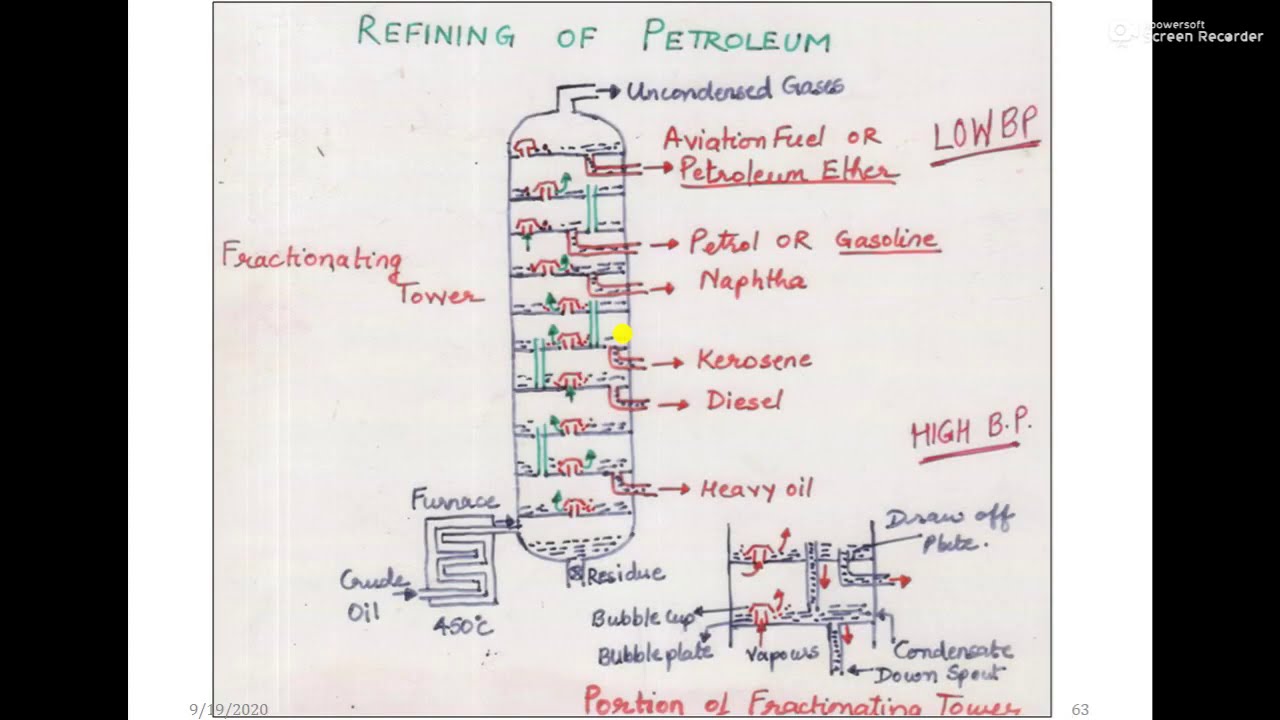 REFINING OF PETROLEUM
powersoft
Screen Recorder
Uncondensed Gases
Aviation Fuel OR
Petroleum Ether
LOW BP
Petrol OR Gasoline
Naphtha
Fractionating
Tower
Kerosene
Diesel
HIGH B.P.
Heavy oil
Furnace
Crude
Oil
450°C
Residue
Draw off
Plate.
Bubble cup
Bubble plate
Vapours
Condensate
Down Spout
Portion of Fractionating Tower
9/19/2020
63